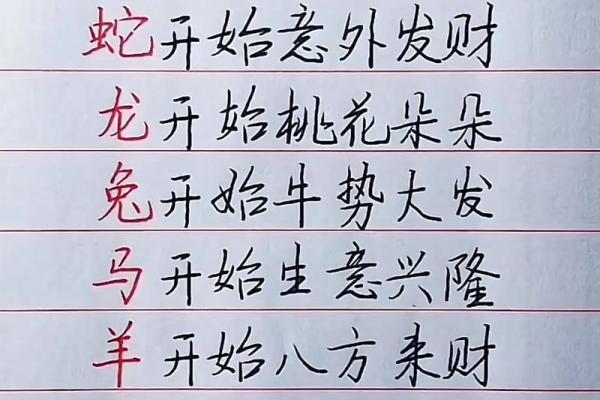 蛇开始意外发财
龙开始桃花朵朵
兔开始牛势大发
马开始生意兴隆
羊开始八方来财